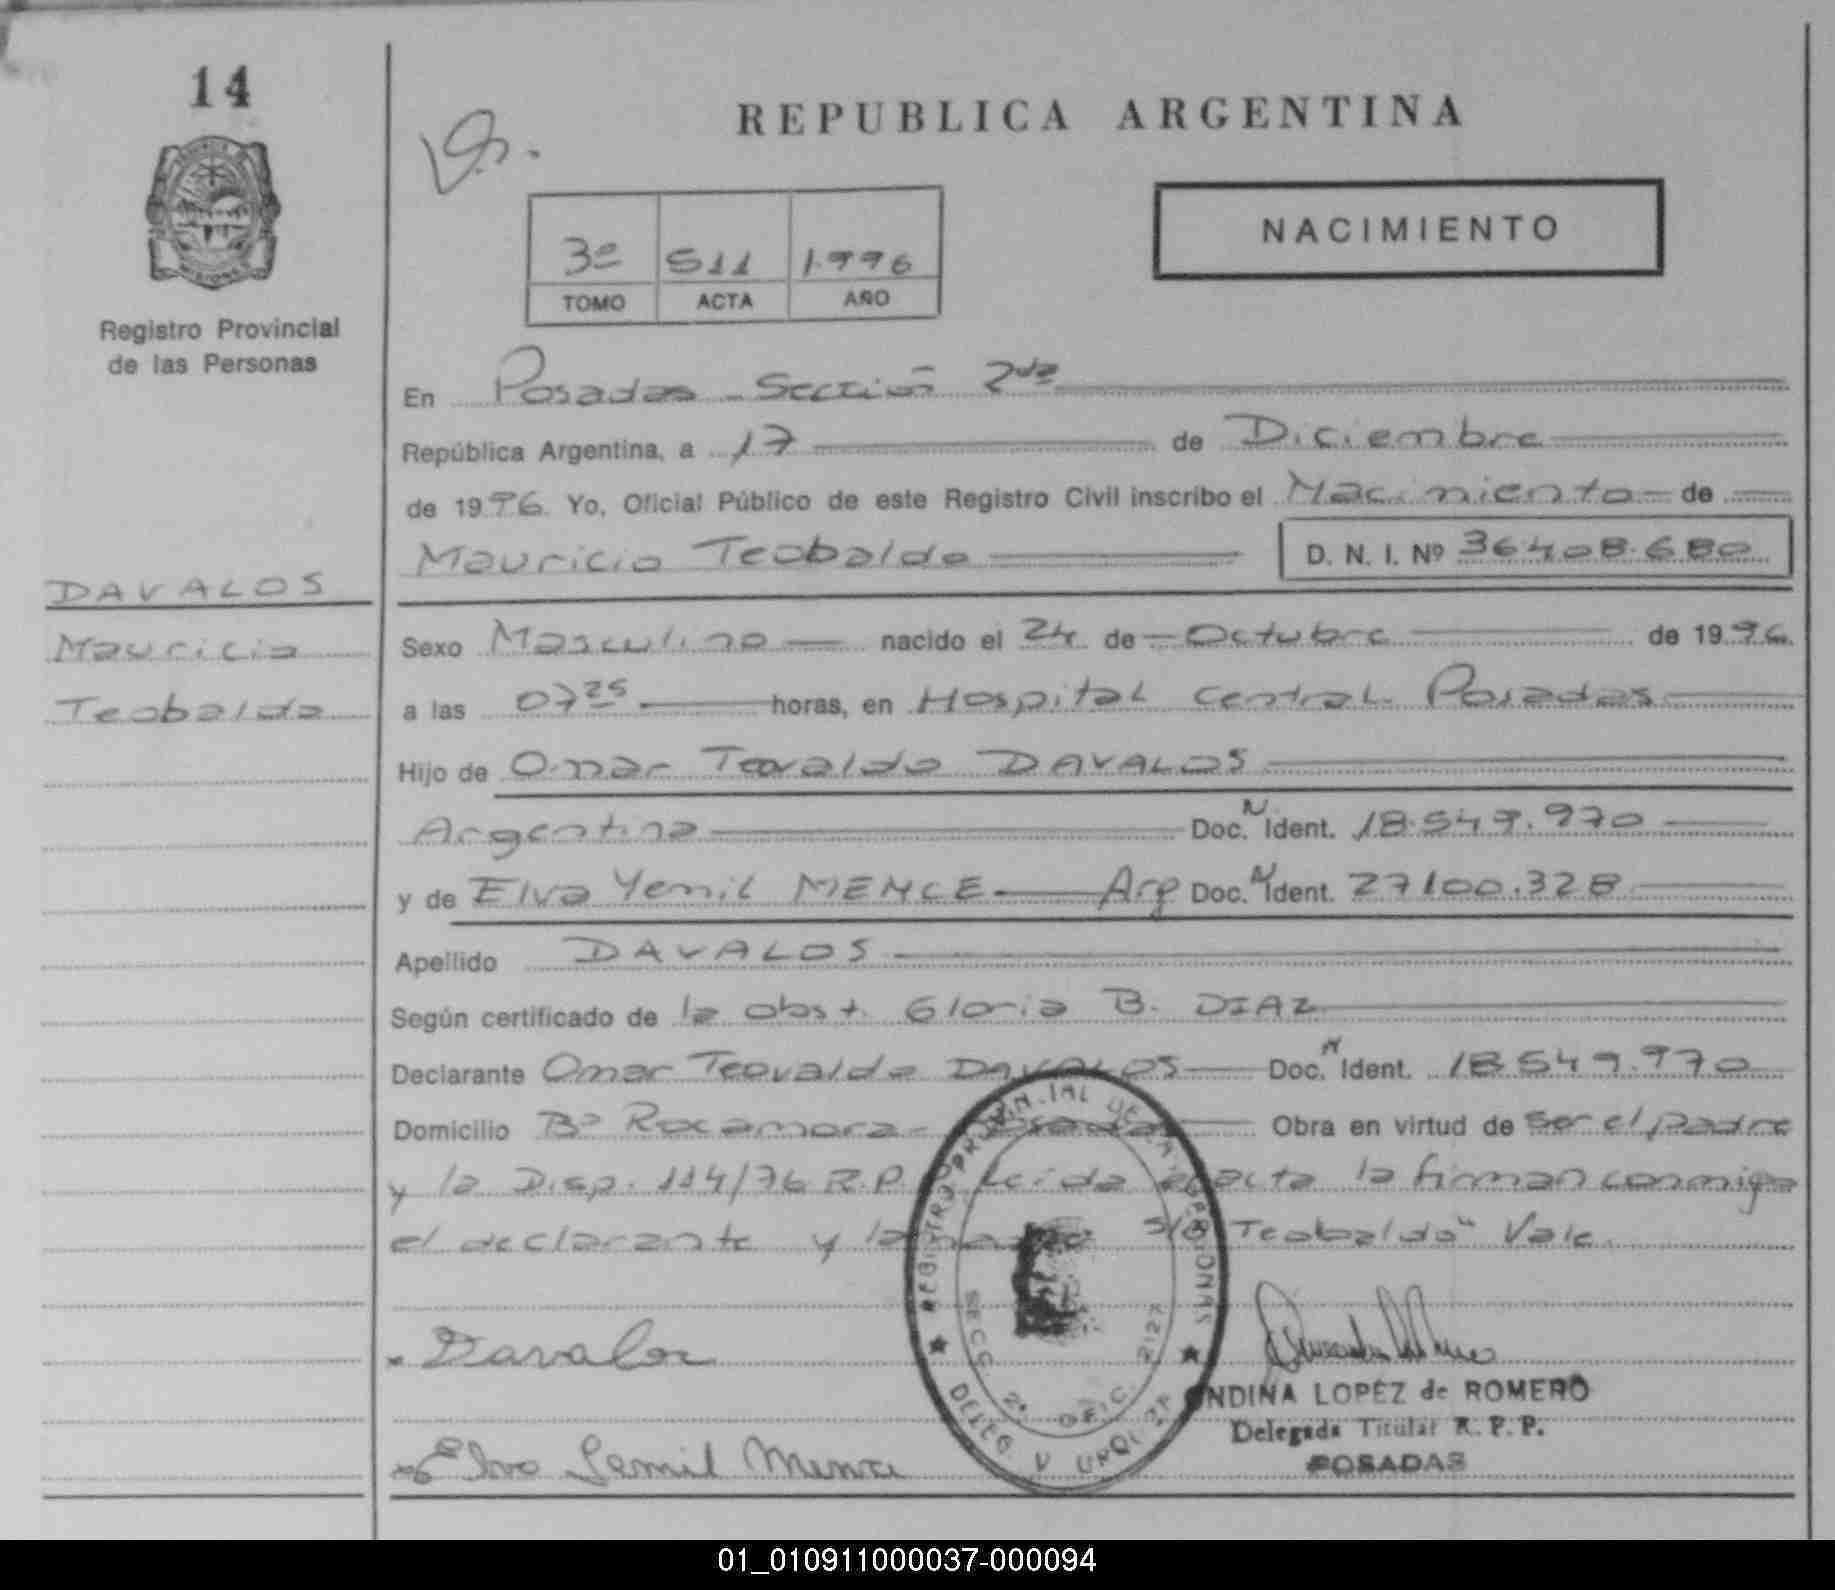 14
REPUBLICA ARGENTINA
NACIMIENTO
3º 511 1.996
TOMO ACTA AÑO
Registro Provincial
de las Personas
En Posadas - Sección 2da
República Argentina, a 17 de Diciembre
de 1996. Yo, Oficial Público de este Registro Civil inscribo el Nacimiento de
Mauricio Teobaldo D. N. I. Nº 36.408.680
DAVALOS
Mauricio
Teobaldo
Sexo Masculino nacido el 24 de Octubre de 1996.
a las 07 25 horas, en Hospital Central Posadas
Hijo de Omar Teovaldo DAVALOS
Argentina Doc. N Ident. 18.549.970
y de Elva Yemil MENCE Arg Doc. N Ident. 27100.328
Apellido DAVALOS
Según certificado de la obst. Gloria B. DIAZ
Declarante Omar Teovaldo DAVALOS Doc. N Ident. 18.549.970
Domicilio Bº Rocamora - Posadas Obra en virtud de ser el padre
y la Disp. 114/76 R.P. Leida el acta la firman conmigo
el declarante y la madre S/r "Teobaldo" Vale.
Davalos
Elva Yemil Mence
REGISTRO PROVINCIAL DE LAS PERSONAS
SECC. 2ª OFIC. 2127
DELEG. V URQUIZA
ONDINA LOPEZ de ROMERO
Delegada Titular R. P. P.
POSADAS
01_010911000037-000094